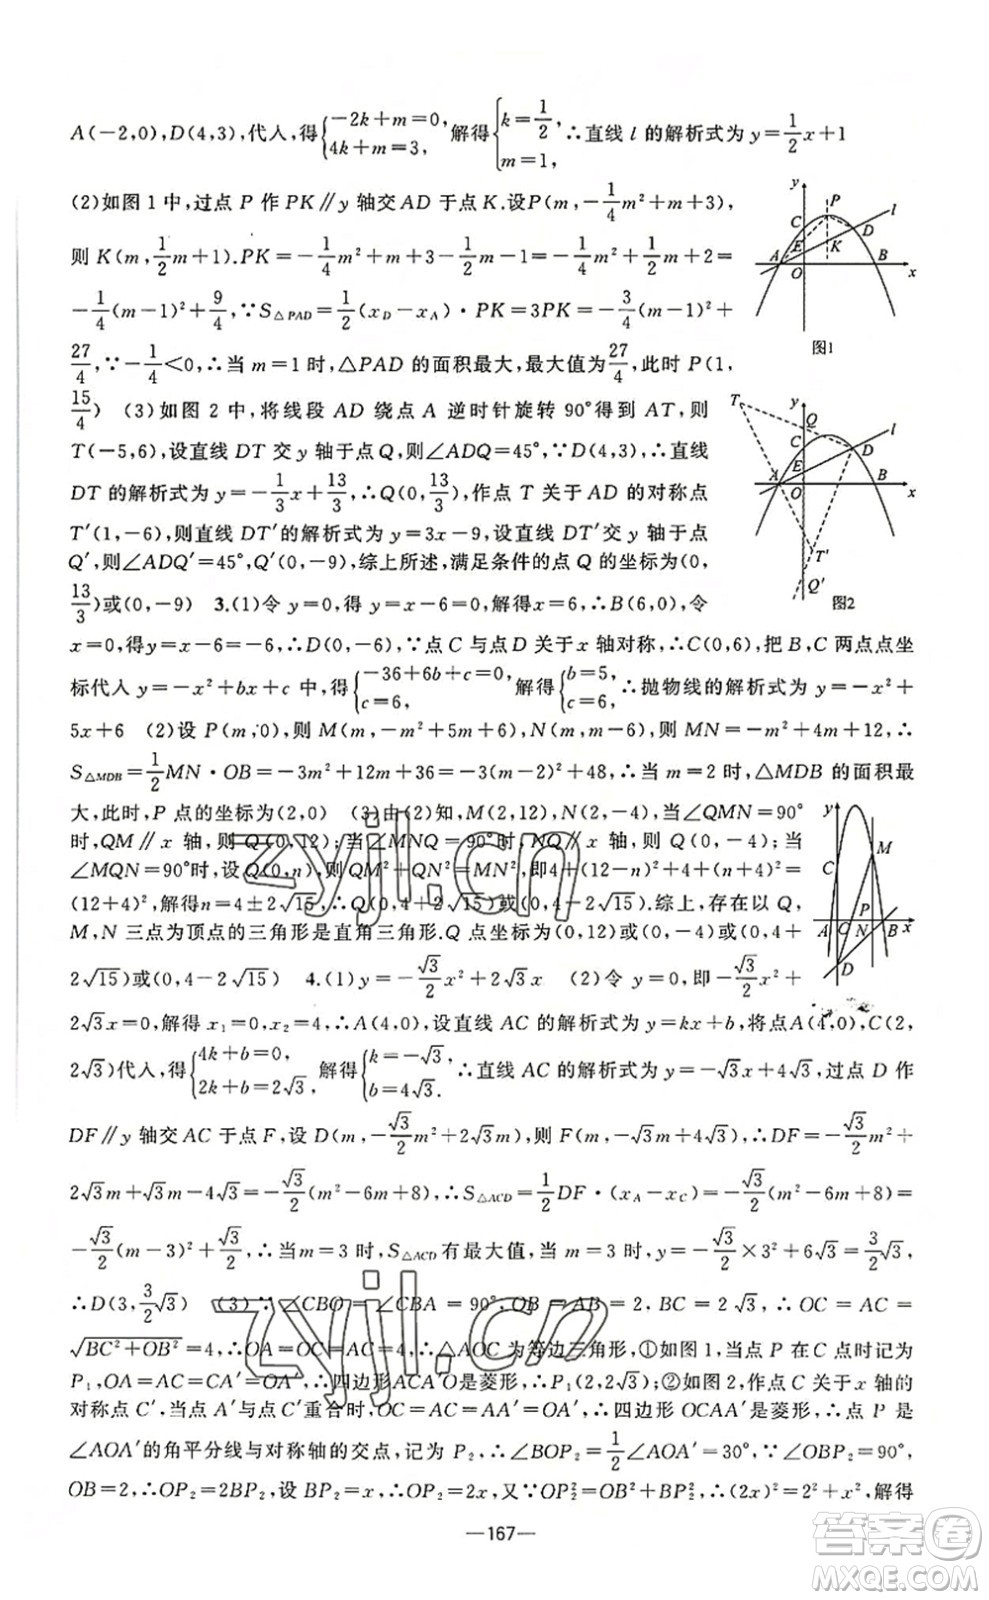 A(-2,0),D(4,3),代人,得{-2k+m=0, 4k+m=3, 解得{k=1/2, m=1, ∴直线 l 的解析式为 y=1/2x+1
(2)如图 1 中,过点 P 作 PK∥y 轴交 AD 于点 K.设P(m,-1/4m²+m+3),
则 K(m,1/2m+1).PK=-1/4m²+m+3-1/2m-1=-1/4m²+1/2m+2=
-1/4(m-1)²+9/4,∵S△PAD=1/2(x_D-x_A)·PK=3PK=-3/4(m-1)²+
27/4,∵-1/4<0,∴当 m=1 时,△PAD 的面积最大,最大值为27/4,此时 P(1,
15/4) (3)如图 2 中,将线段 AD 绕点 A 逆时针旋转 90°得到 AT,则
T(-5,6),设直线 DT 交 y 轴于点 Q,则∠ADQ=45°,∵D(4,3),∴直线
DT 的解析式为 y=-1/3x+13/3,∴Q(0,13/3),作点 T 关于 AD 的对称点
T′(1,-6),则直线 DT′的解析式为 y=3x-9,设直线 DT′交 y 轴于点
Q′,则∠ADQ′=45°,∴Q′(0,-9),综上所述,满足条件的点 Q 的坐标为(0,
13/3)或(0,-9) 3.(1)令 y=0,得 x-6=0,解得x=6,∴B(6,0),令
x=0,得y=x-6=-6,∴D(0,-6),∵点 C 与点D 关于 x 轴对称,∴C(0,6),把 B、C 两点点坐
标代入 y=-x²+bx+c 中,得{-36+6b+c=0, c=6, 解得{b=5, c=6, ∴抛物线的解析式为 y=-x²+
5x+6 (2)设 P(m,0),则 M(m,-m²+5m+6),N(m,m-6),则 MN=-m²+4m+12,∴
S△MDB=1/2MN·OB=-3m²+12m+36=-3(m-2)²+48,∴当 m=2 时,△MDB 的面积最
大,此时,P 点的坐标为(2,0) (3)由(2)知,M(2,12),N(2,-4),当∠QMN=90°
时,QM∥x 轴,则 Q(0,12);当∠MNQ=90°时,NQ∥x 轴,∴Q(0,-4);当
∠MQN=90°时,设Q(0,n),则QM²+QN²=MN²,即4+(12-n)²+4+(n+4)²=
(12+4)²,解得n=4±2√15,∴Q(0,4+2√15)或(0,4-2√15).综上,存在以Q,
M,N 三点为顶点的三角形是直角三角形.Q 点坐标为(0,12)或(0,-4)或(0,4+
2√15)或(0,4-2√15) 4.(1)y=-√3/2x²+2√3x (2)令 y=0,即-√3/2x²+
2√3x=0,解得 x₁=0,x₂=4,∴A(4,0),设直线 AC 的解析式为 y=kx+b,将点A(4,0),C(2,
2√3)代人,得{4k+b=0, 2k+b=2√3, 解得{k=-√3, b=4√3. ∴直线 AC 的解析式为 y=-√3x+4√3,过点 D 作
DF∥y 轴交 AC 于点 F,设 D(m,-√3/2m²+2√3m),则 F(m,-√3m+4√3),∴DF=-√3/2m²+
2√3m+√3m-4√3=-√3/2(m²-6m+8),∴S△ACD=1/2DF·(x_A-x_C)=-√3/2(m²-6m+8)=
-√3/2(m-3)²+√3/2,∴当 m=3 时,S△ACD有最大值,当 m=3 时,y=-√3/2×3²+6√3=3/2√3,
∴D(3,3/2√3) (3)∵∠CBO=∠CBA=90°,OB=AB=2,BC=2√3,∴OC=AC=
√BC²+OB²=4,∴OA=OC=AC=4,∴△AOC 为等边三角形,①如图 1,当点 P 在 C 点时记为
P₁,OA=AC=CA′=OA′,∴四边形ACA′O是菱形,∴P₁(2,2√3);②如图 2,作点 C 关于 x 轴的
对称点 C′,当点 A′与点 C′重合时,OC=AC=AA′=OA′,∴四边形 OCAA′是菱形,∴点 P 是
∠AOA′的角平分线与对称轴的交点,记为 P₂,∴∠BOP₂=1/2∠AOA′=30°,∵∠OBP₂=90°,
OB=2,∴OP₂=2BP₂,设 BP₂=x,∴OP₂=2x,又∵OP₂²=OB²+BP₂²,∴(2x)²=2²+x²,解得
y
P
C
l
E
D
K
A
O
B
x
图1
T
y
Q
C
l
D
E
A
O
B
x
T′
Q′
图2
y
C
M
P
A
O
N
B
x
D
zyjl.cn
zyjl.cn
—167—
答案圈
MXQE.COM